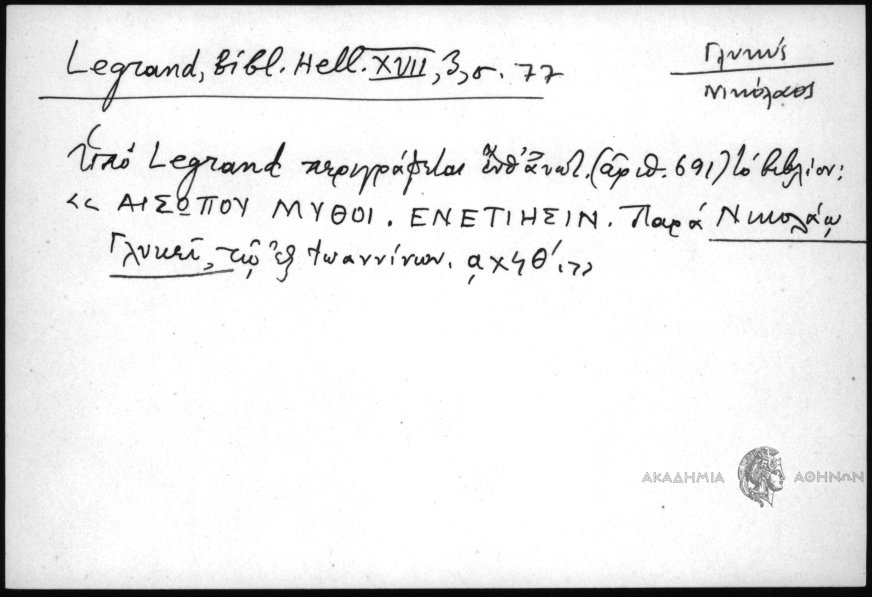 Legrand, Bibl. Hell. XVII, 3, σ. 77
Γλυκύς
Νικόλαος
Ὑπὸ Legrand περιγράφεται ἐνθ' ἀνωτ. (ἀριθ. 691) τὸ βιβλίον:
<< ΑΙΣΩΠΟΥ ΜΥΘΟΙ. ΕΝΕΤΙΗΣΙΝ. Παρὰ Νικολάῳ
Γλυκεῖ, τῷ ἐξ Ἰωαννίνων. αχϟθ΄.>>
ΑΚΑΔΗΜΙΑ ΑΘΗΝΩΝ